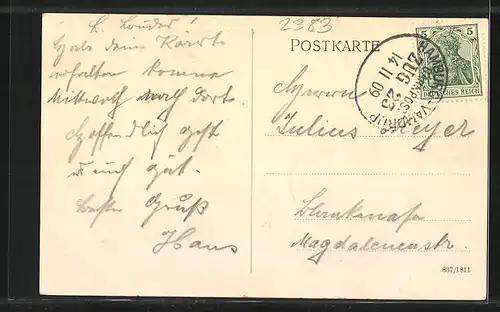 2383
POSTKARTE
5 5
DEUTSCHES REICH
HAMBURG-VAMDRUP
BAHNPOST
ZUG
14 11 09
Habe deine Karte
erhalten komme
Mittwoch nach dort.
Hoffendlich geht
es euch gut.
Besten Gruß
Hans
Herrn
Julius Meyer
Blankenese
Magdalenenstr.
837/1811